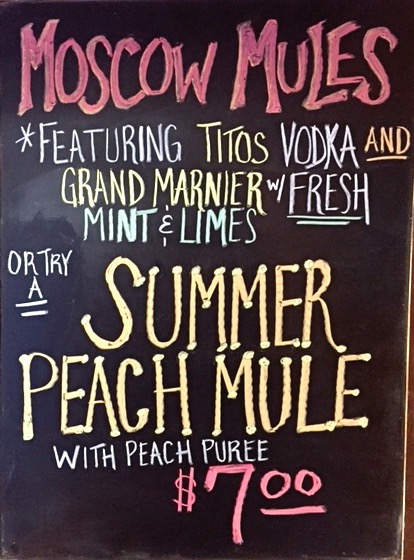 MOSCOW MULES
*FEATURING TITOS VODKA AND
GRAND MARNIER W/ FRESH
MINT & LIMES
OR TRY
A
SUMMER
PEACH MULE
WITH PEACH PUREE
$700